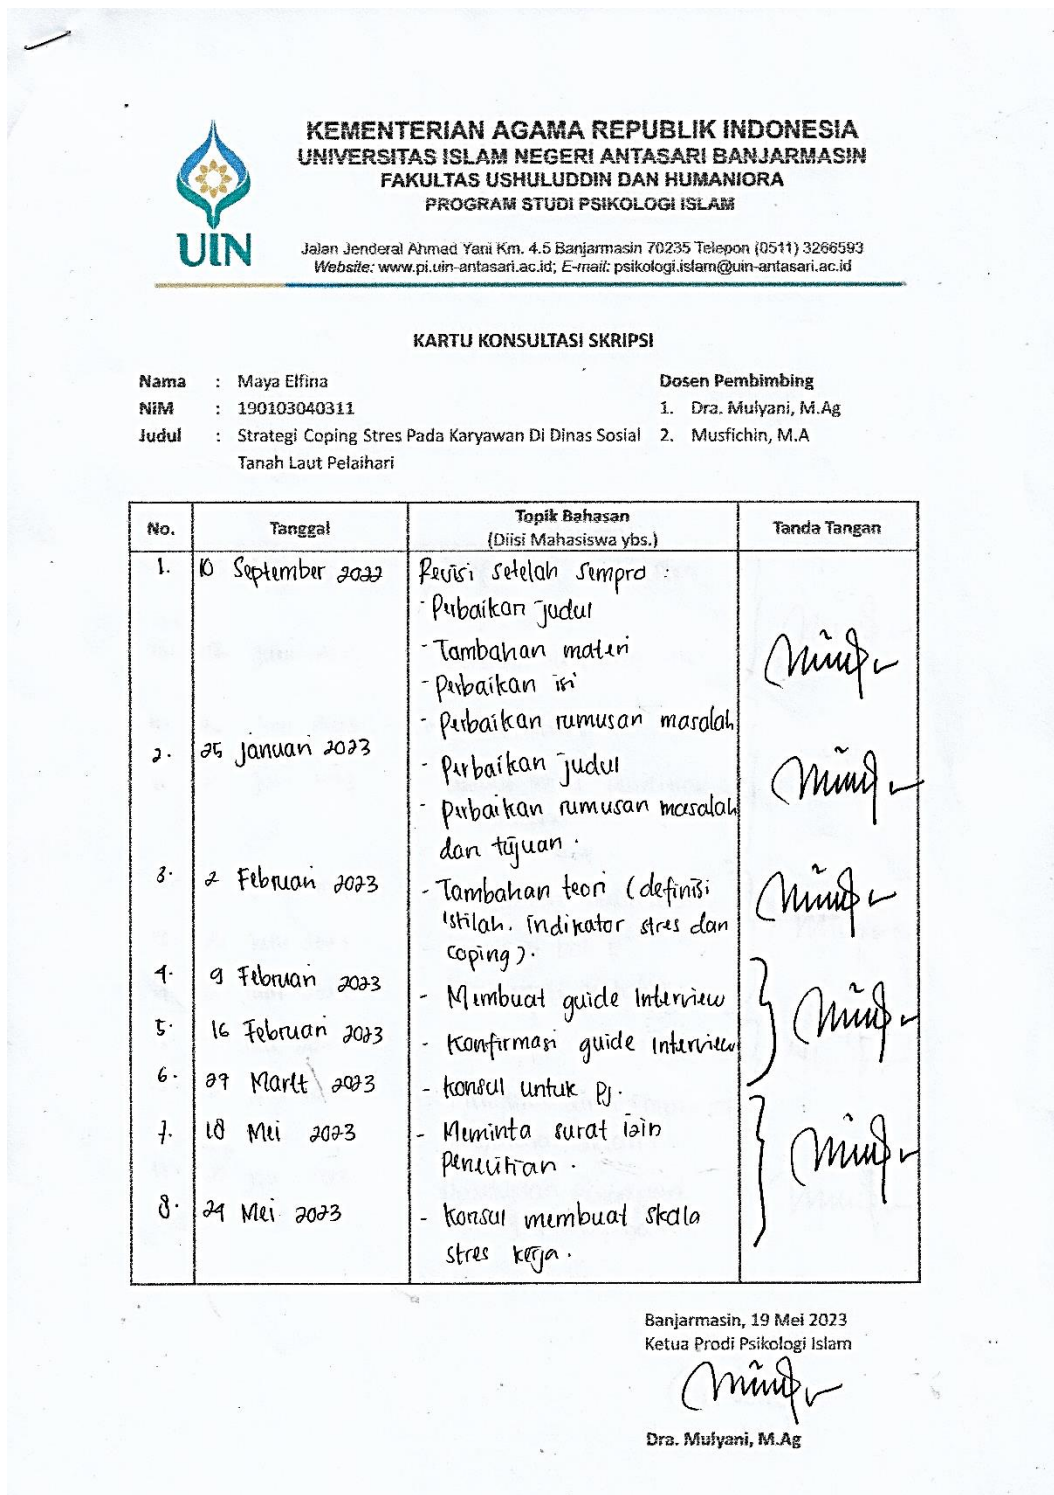 KEMENTERIAN AGAMA REPUBLIK INDONESIA
UNIVERSITAS ISLAM NEGERI ANTASARI BANJARMASIN
FAKULTAS USHULUDDIN DAN HUMANIORA
PROGRAM STUDI PSIKOLOGI ISLAM
UIN
Jalan Jenderal Ahmad Yani Km. 4.5 Banjarmasin 70235 Telepon (0511) 3266593
Website: www.pi.uin-antasari.ac.id; E-mail: psikologi.islam@uin-antasari.ac.id
KARTU KONSULTASI SKRIPSI
Nama : Maya Elfina
NIM : 190103040311
Judul : Strategi Coping Stres Pada Karyawan Di Dinas Sosial
Tanah Laut Pelaihari
Dosen Pembimbing
1. Dra. Mulyani, M.Ag
2. Musfichin, M.A
No. Tanggal Topik Bahasan Tanda Tangan
(Diisi Mahasiswa ybs.)
1. 10 September 2022 Revisi setelah sempro :
- Perbaikan judul
- Tambahan materi
- Perbaikan isi
- Perbaikan rumusan masalah
2. 25 Januari 2023 - Perbaikan judul
- Perbaikan rumusan masalah
dan tujuan.
3. 2 Februari 2023 - Tambahan teori (definisi
istilah. indikator stres dan
coping).
4. 9 Februari 2023 - Membuat guide Interview
5. 16 Februari 2023 - Konfirmasi guide Interview
6. Maret 2023 - Konsul untuk PJ.
7. 18 Mei 2023 - Meminta surat izin
penelitian.
8. 24 Mei 2023 - Konsul membuat skala
stres kerja.
Banjarmasin, 19 Mei 2023
Ketua Prodi Psikologi Islam
Dra. Mulyani, M.Ag